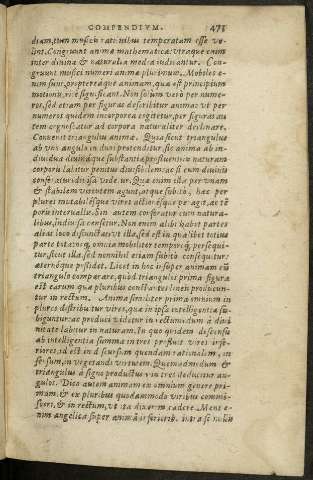 COMPENDIVM. 471
diam, tum musicis rationibus temperatam esse ve-
lint. Congruunt animæ mathematica: vtraque enim
inter diuina & naturalia media iudicantur. Con-
gruunt musici numeri animæ plurimum. Mobiles e-
nim sunt, proptereáque animam, quæ est principium
motionis, ritè significant. Non solùm verò per nume-
ros, sed etiam per figuras describitur anima: vt per
numeros quidem incorporea cogitetur, per figuras au
tem cognoscatur ad corpora naturaliter declinare.
Conuenit triangulus animæ. Quia sicut triangulus
ab vno angulo in duos protenditur, sic anima ab in-
diuidua diuináque substantia profluens in naturam
corporis labitur penitus diuisibilem: ac si cum diuinis
conferatur diuisa videtur. Quæ enim illa per vnam
& stabilem virtutem agunt, atque subitò, hæc per
plures mutabilésque vires actionésque peragit, ac tẽ
poris interuallo. Sin autem conferatur cum natura-
libus, indiuisa censetur. Non enim alibi habet partes
alias loco disiunctas vt illa, sed est in qualibet totius
parte tota: neq; omnia mobiliter tempiréq; persequi-
tur, sicut illa, sed nonnihil etiam subitò consequitur:
æternóque possidet. Licet in hoc insuper animam cũ
triangulo comparare, quòd triangulus prima figura
est earum quæ pluribus constantes lineis producun-
tur in rectum. Anima similiter prima omnium in
plures distribuitur vires, quæ in ipsa intelligentia su-
biguntur: ac produci videtur in rectum, dum à diui-
nitate labitur in naturam. In quo quidem descensu
ab intelligentia summa in tres profluit vires infe-
riores, id est in discursum quendam rationalem, in
sensum, in vegetandi virtutem. Quemadmodum &
triangulus à signo productus in tres deducitur an-
gulos. Dico autem animam ex omnium genere pri-
mam, & ex pluribus quodammodo viribus commi-
sceri, & in rectum, vt ita dixerim cadere. Mens e-
nim angelica super animã is inferiorib. intra se nullis